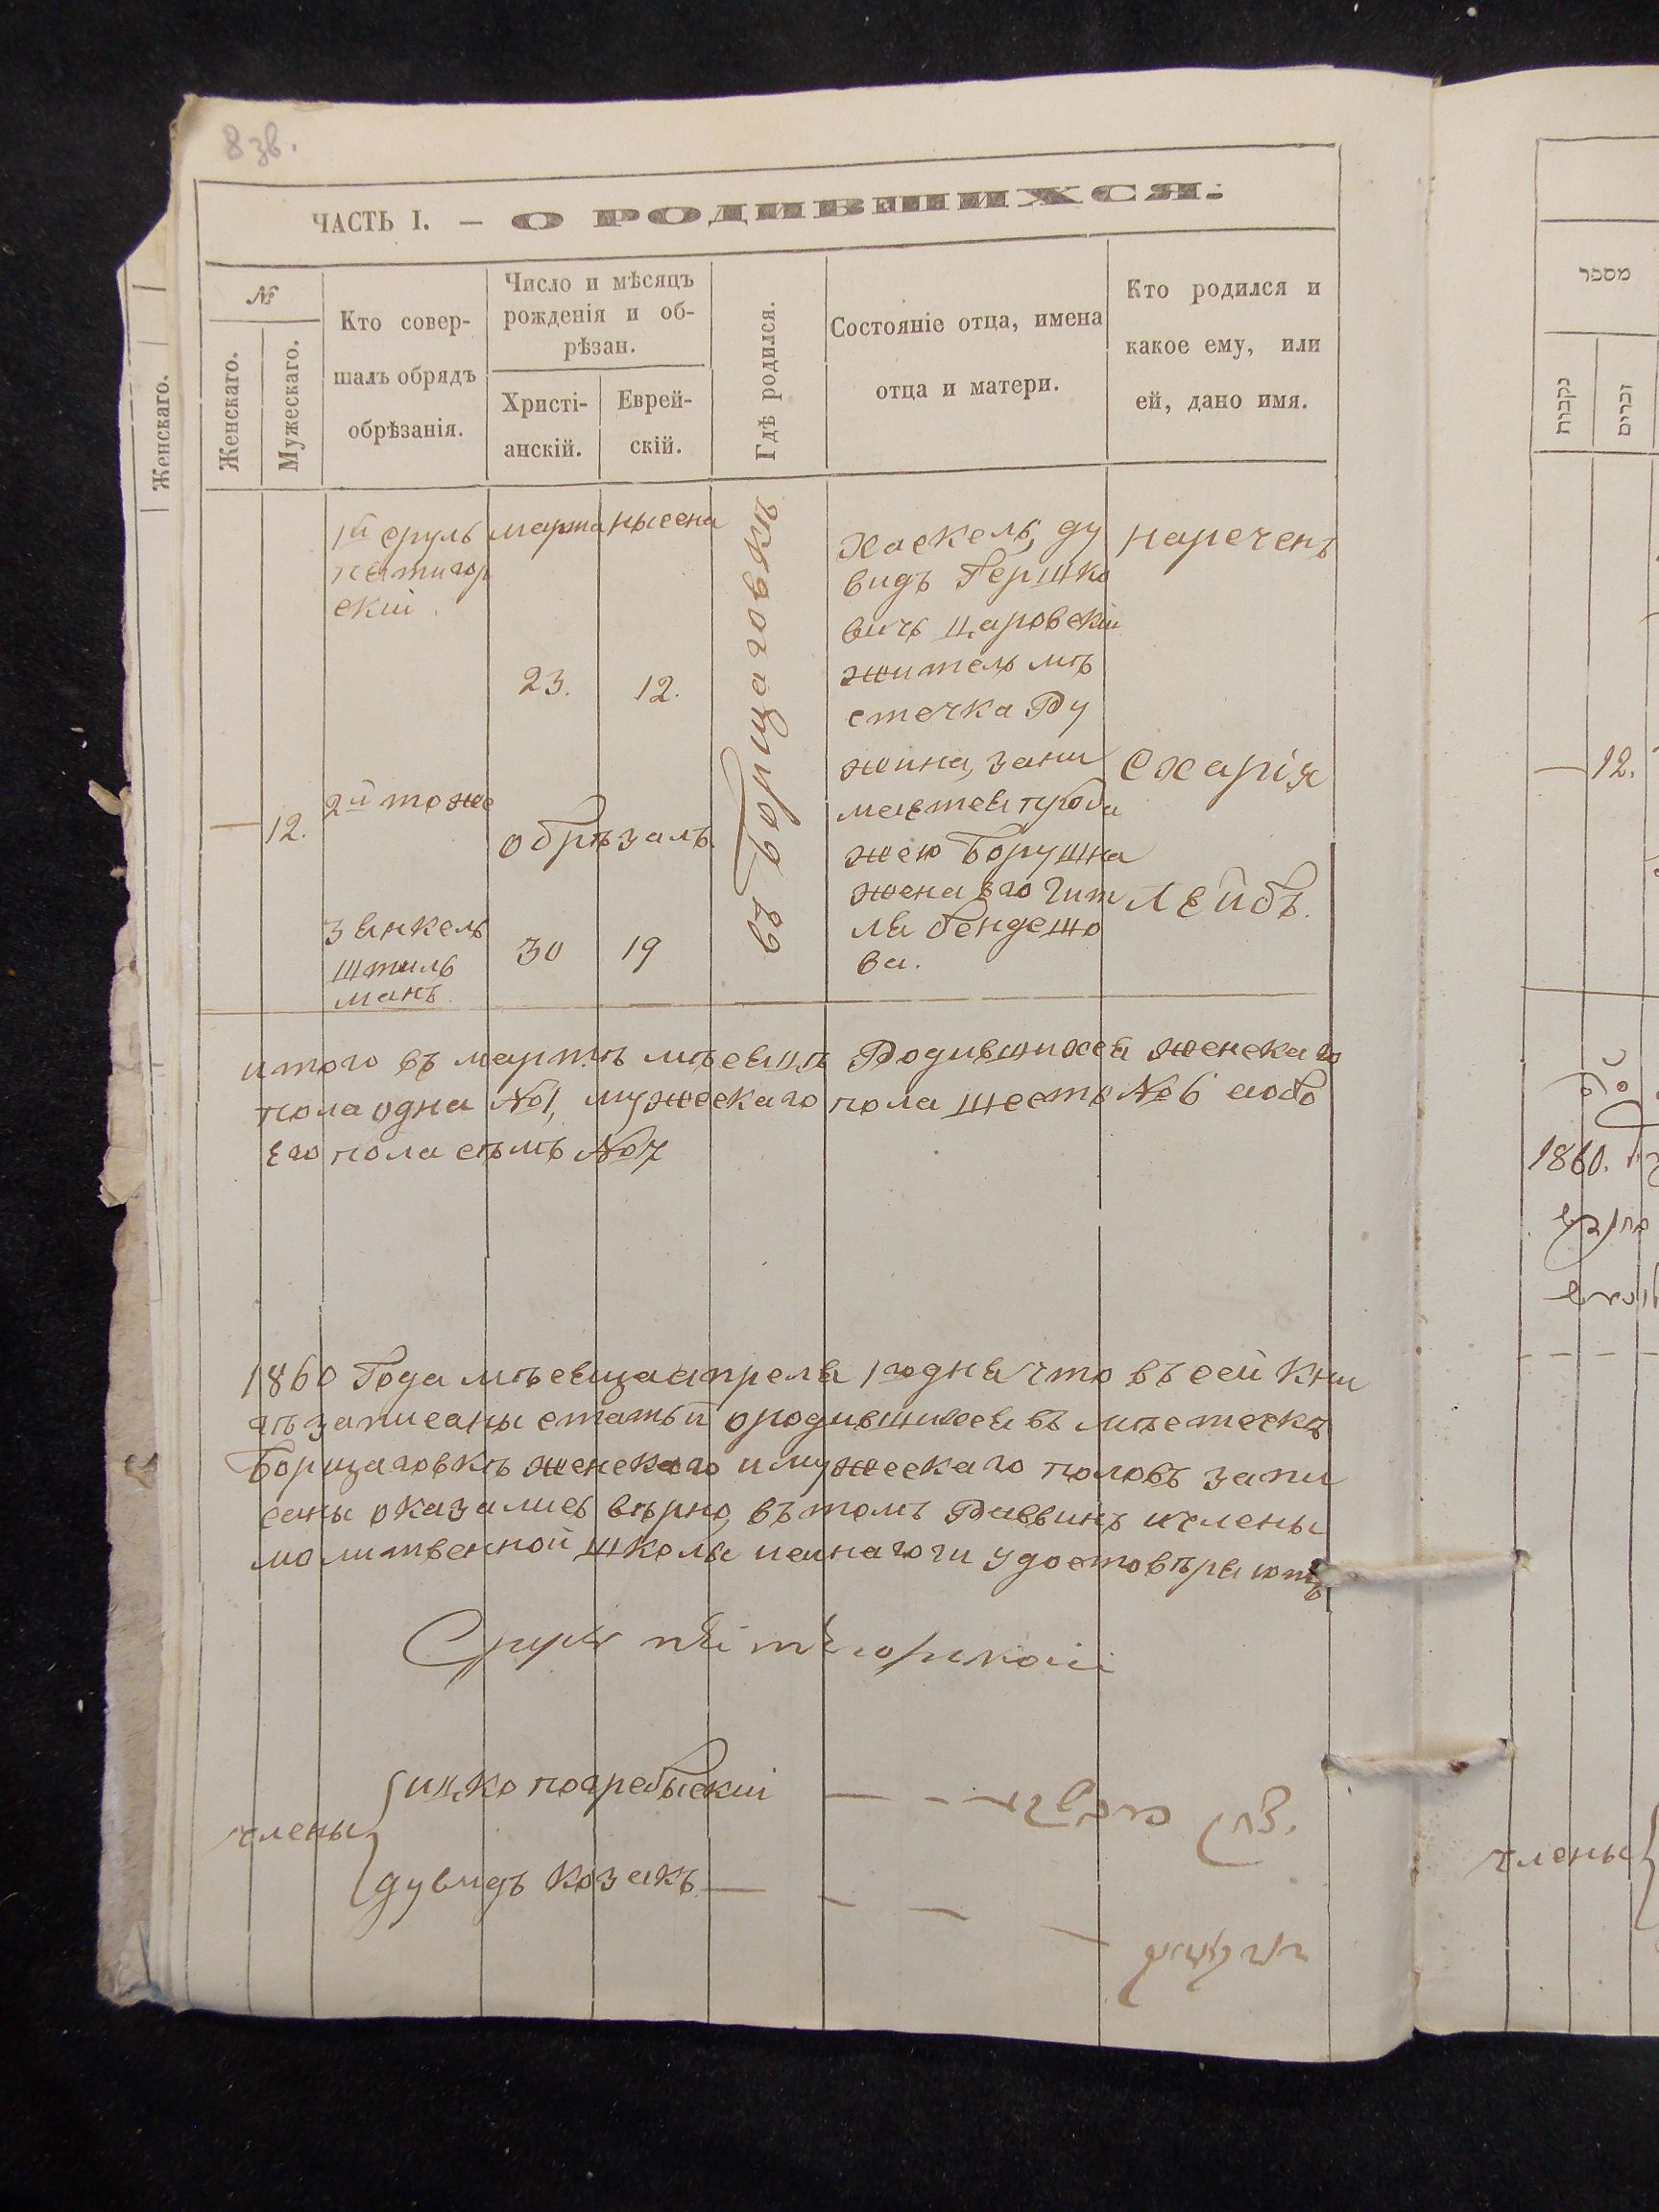 8 зв.
ЧАСТЬ I. — О РОДИВШИХСЯ.
№
Женскаго.
Мужескаго.
Кто совер-
шалъ обрядъ
обрѣзанія.
Число и мѣсяцъ
рожденія и об-
рѣзан.
Христі-
анскій.
Еврей-
скій.
Гдѣ родился.
Состояніе отца, имена
отца и матери.
Кто родился и
какое ему, или
ей, дано имя.
Женскаго.
—
12.
1й сруль
пятигор
скій.
2й тоже
3 янкель
штиль
манъ.
марта
нысена
23.
12.
обрѣзалъ.
30
19
въ борщаговкѣ
Хаскель, ду
видъ Гершко
вичъ царовскій
житель мѣ
стечка Ру
жина, зани
мается прода
жею
жена его Гит
ля бендешо
ва.
нареченъ
Схарія
Лейбъ.
итого въ мартѣ мѣсяцѣ Родившихся женскаго
пола одна №1, мужескаго пола шесть №6 аобо
его пола сѣмь №7
1860 Года мѣсяца апреля 1го дня что въ сей кни
гѣ записаны статьи ородившихся въ мѣстечкѣ
Борщаговкѣ женскаго и мужескаго половъ запи
саны оказались вѣрно, въ томъ Раввинъ и члены
молитвенной школы и синагоги удостовѣряютъ
Сруль
члены
ицко погребыскій
дувидъ козакъ
מספר
נקבות
זכרים
—
12.
1860.
члены